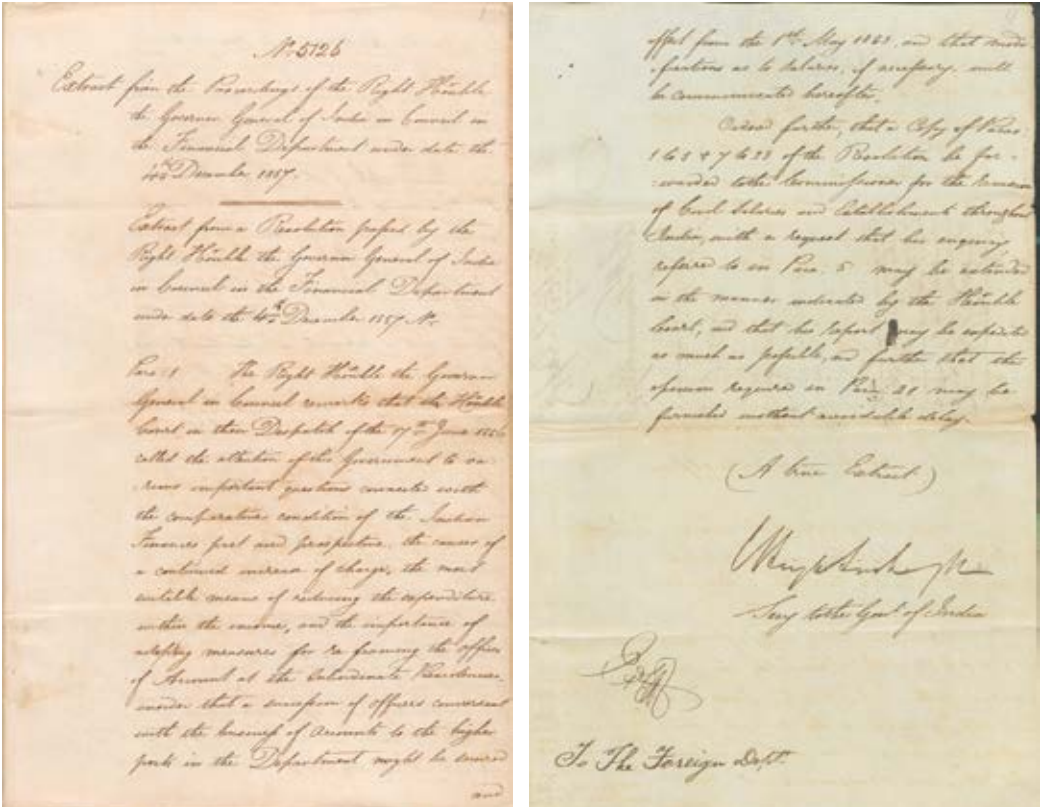 No 5126
Extract from the Proceedings of the Right Honble
the Governor General of India in Council in
the Financial Department under date the
4th December 1857.
Extract from a Resolution passed by the
Right Honble the Governor General of India
in Council in the Financial Department
under date the 4th December 1857. No
Para: 1 The Right Honble the Governor
General in Council remarks that the Honble
Court in their Despatch of the 17th June
called the attention of this Government to va-
rious important questions connected with
the comparative condition of the Indian
Finances past and prospective, the causes of
a continued increase of charge, the most
suitable means of reducing the expenditure
within the income, and the importance of
adopting measures for re framing the offices
of Account at the Subordinate Presidencies
in order that a succession of officers conversant
with the business of Accounts to the higher
posts in the Department might be secured
and
effect from the 1st May and that modi
fications as to Salaries, if necessary, will
be communicated hereafter.
Ordered further, that a Copy of Paras:
1 to 5 & 7 to 23 of the Resolution be for-
warded to the Commissioner for the Revision
of Civil Salaries and Establishments throughout
India, with a request that his enquiry
referred to in Para: 5 may be extended
in the manner indicated by the Honble
Court, and that his report may be expedited
as much as possible, and further that the
opinion required in Para: 21 may be
furnished without avoidable delay.
(A true Extract)
Secy to the Govt of India
To The Foreign Dept.